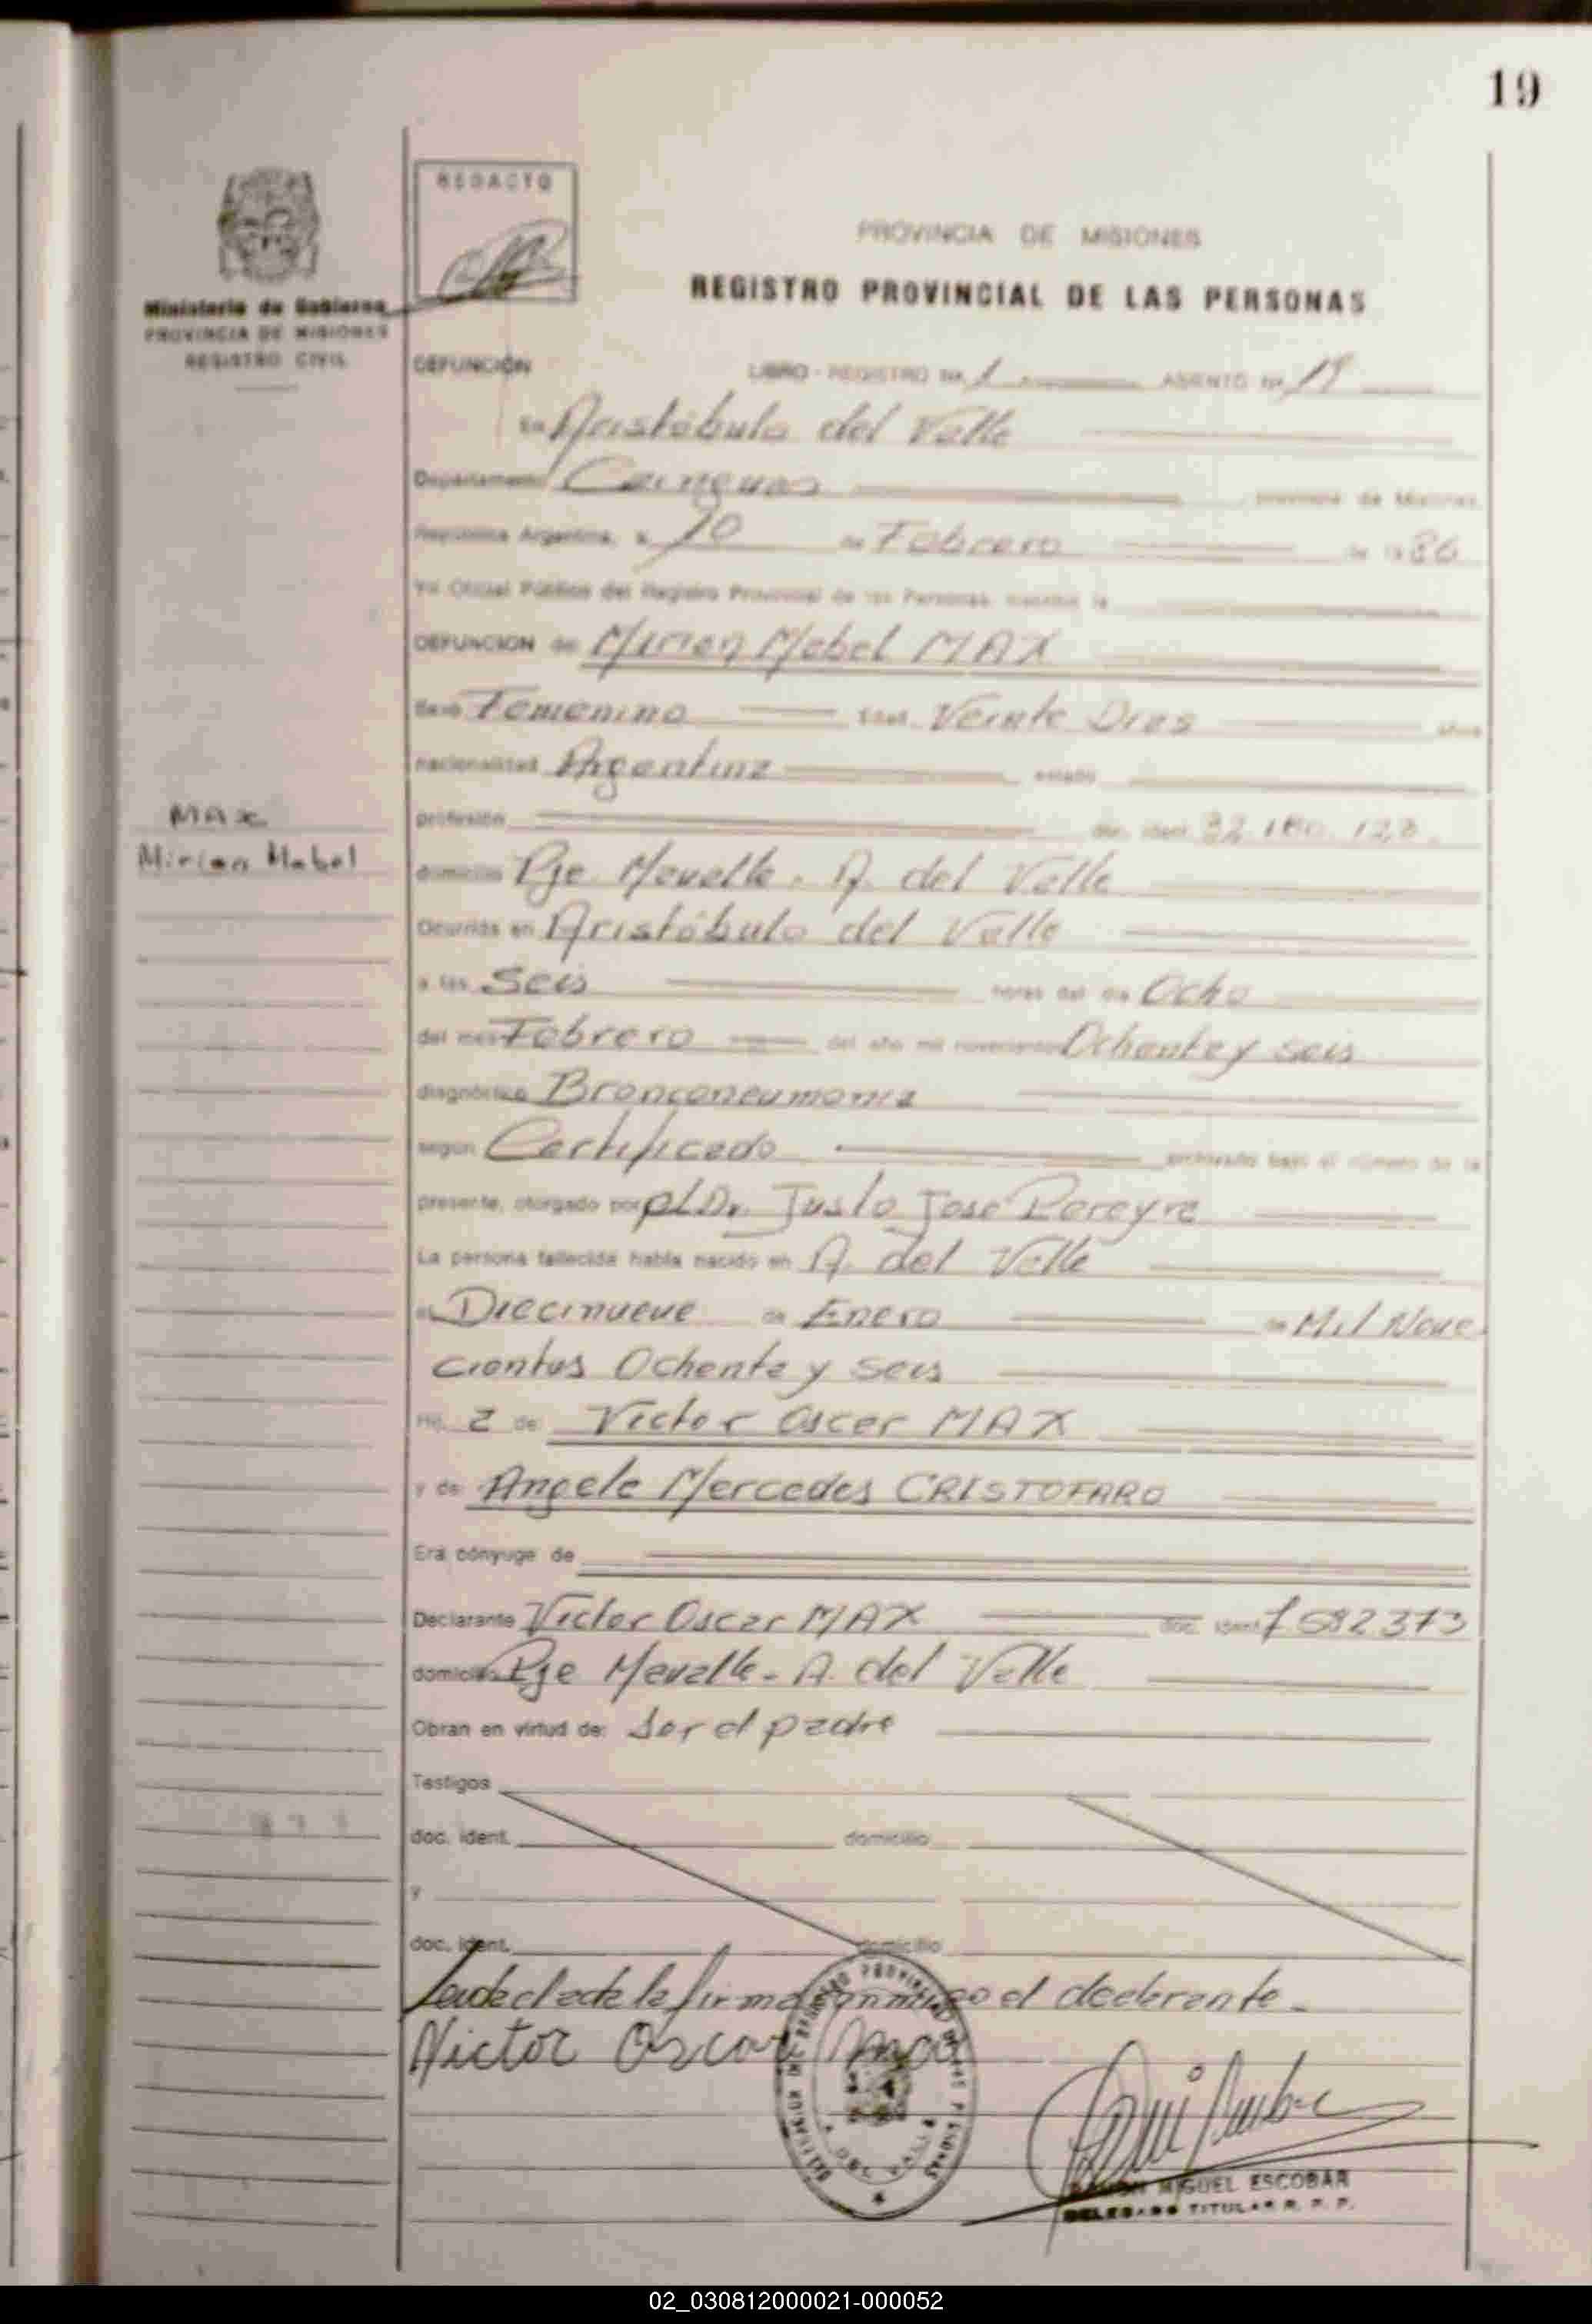 19
REDACTO
Ministerio de Gobierno
PROVINCIA DE MISIONES
REGISTRO CIVIL
PROVINCIA DE MISIONES
REGISTRO PROVINCIAL DE LAS PERSONAS
DEFUNCIÓN LIBRO - REGISTRO Nº 1 ASIENTO Nº 19
En Aristóbulo del Valle
Departamento Cainguas provincia de Misiones,
República Argentina, a 10 de Febrero de 1986
Yo Oficial Público del Registro Provincial de las Personas, inscribo la
DEFUNCION de Mirian Mabel MAX
Sexo Femenino Edad Veinte Dias años
nacionalidad Argentina estado
profesión doc. ident.
MAX
Mirian Mabel
domicilio Pje Mavalle - A. del Valle
Ocurrida en Aristóbulo del Valle
a las Seis horas del dia Ocho
del mes Febrero del año mil novecientos Ochenta y seis
diagnóstico Bronconeumonia
según Certificado archivado bajo el número de la
presente, otorgado por el Dr. Justo José Pereyra
La persona fallecida había nacido en A. del Valle
el Diecinueve de Enero de Mil Nove
cientos Ochenta y seis
Hij a de Victor Oscar MAX
y de Angela Mercedes CRISTOFARO
Era cónyuge de
Declarante Victor Oscar MAX doc. ident. 7582373
domicilio Pje Mavalle - A. del Valle
Obran en virtud de: ser el padre
Testigos
doc. ident. domicilio
y
doc. ident. domicilio
Leida el acta la firma conmigo el declarante -
Victor Oscar Max
A. DEL VALLE
RAMON MIGUEL ESCOBAR
DELEGADO TITULAR R. P. P.
02_030812000021-000052